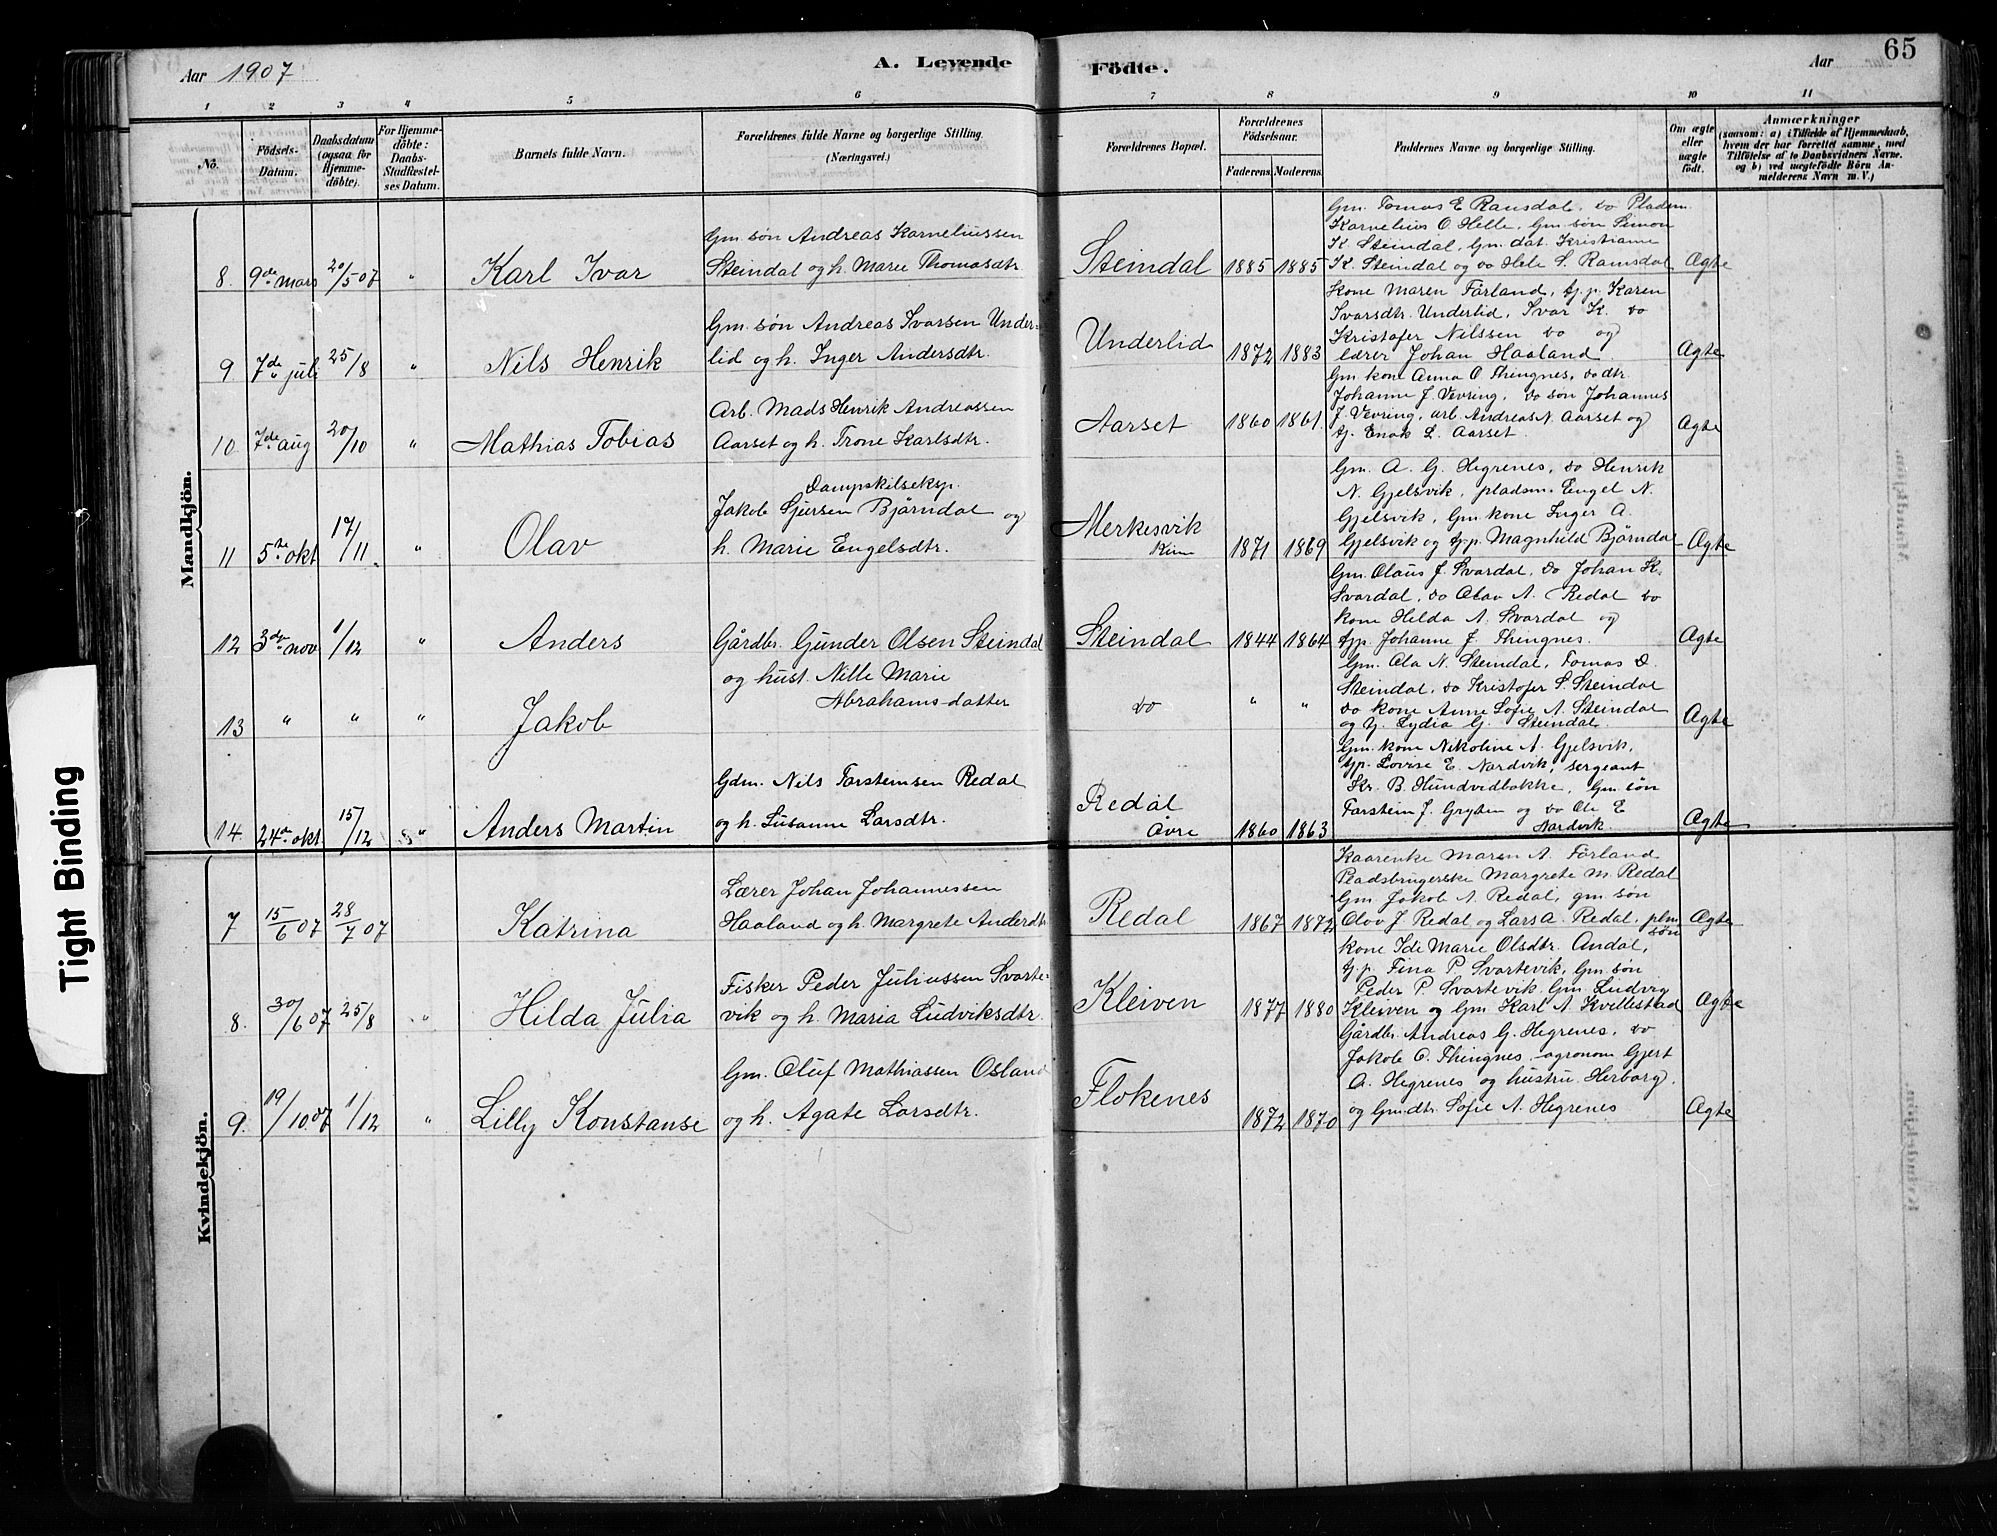 Aar 1907
A. Levende
Födte.
Aar
65
1
2
3
4
5
6
7
8
9
10
11
No.
Födsels-
Datum.
Daabsdatum
(ogsaa for
Hjemme-
döbte).
For Hjemme-
döbte:
Daabs-
Stadfæstel-
ses Datum.
Barnets fulde Navn.
Forældrenes fulde Navne og borgerlige Stilling.
(Næringsvei.)
Forældrenes Bopæl.
Forældrenes
Födselsaar.
Faderens.
Moderens.
Faddernes Navne og borgerlige Stilling.
Om ægte
eller
uægte
födt.
Anmærkninger
(saasom: a) i Tilfælde af Hjemmedaab,
hvem der har forrettet samme, med
Tilföielse af to Daabsvidners Navne.
og b) ved uægtefödte Börn An-
melderens Navn m. V.)
Mandkjön.
8. 9de mars 20/5 07 " Karl Ivar
Gm. søn Andreas Korneliussen
Steindal og h. Marie Thomasdtr
Steindal 1885 1885
Gm. Tomas E Ramsdal, do Pladsm.
Kornelius O Helle, Gm. søn Simon
K. Steindal, Gm. dat. Kristianne
K. Steindal og do Hele S. Ramsdal
Ægte
9. 7de juli 25/8 " Nils Henrik
Gm. søn Andreas Ivarsen Under-
lid og h. Inger Andersdtr.
Underlid 1872 1883
Kone Maren Førland, tj. p. Karen
Ivarsdtr. Underlid, Ivar K. do
Kristofer Nilssen do og
lærer Johan Haaland.
Ægte
10. 7de aug 20/10 " Mathias Tobias
Arb. Mads Henrik Andreassen
Aarset og h. Trone Karlsdtr.
Aarset 1860 1861
Gm. kone Anna O. Thingnes, do dtr.
Johanne J. Vevring, do søn Johannes
J. Vevring, arb. Andreas N. Aarset og
tj. Enok L. Aarset.
Ægte
11 5te okt 17/11. " Olav
Dampskilseksp.
Jakob Sjursen Bjørndal og
h. Marie Engelsdtr.
Merkesvik 1871 1869
Gm. A. G. Hegrenes, do Henrik
N. Gjelsvik, pladsm. Engel N.
Gjelsvik, Gm. kone Inger A.
Gjelsvik og tj. p. Magnhild Bjørndal
Ægte
12 3die nov 1/12 " Anders
Gårdbr. Gunder Olsen Steindal
og hust. Nille Marie
Abrahams-datter
Steindal 1844 1864
Gm. Olaus J. Svardal, do Johan K.
Svardal, do Olav A. Redal do
kone Helda A. Svardal og
tjp. Johanne J. Thingnes.
Ægte
13 " " " Jakob
do " "
Gm. Ola N. Steindal, Tomas D.
Steindal, do Kristofer S. Steindal
do kone Anne Sofie A. Steindal
og Lydia G. Steindal.
Ægte
14. 24de okt 15/12 " Anders Martin
Gdm. Nils Torsteinsen Redal
og h. Susanne Larsdtr.
Redal
Øvre 1860 1863
Gm. kone Nikoline A. Gjelsvik,
tjp. Lovise E. Nordvik, sergeant
Kr. B. Hundvidbakke, Gm. søn
Torstein J. Gryten og do Ole E
Nordvik.
Ægte
Kvindekjön.
7 15/6 07 28/7 07 Katrina
Lærer Johan Johannessen
Haaland og h. Margrete Andersdtr
Redal 1867 1872
Kaarenke Maren A. Førland
Pladsbrugerske Margrete M. Redal
Gm. Jakob A. Redal, gm. søn
Olav J. Redal og Lars A. Redal, plm
søn
Ægte
8. 30/6 07 25/8 " Hilda Julia
Fisker Peder Juliussen Svarte-
vik og h. Maria Ludviksdtr.
Kleiven 1877 1880
Kone Ide Marie Olsdtr. Andal,
tj. p. Fina P. Svartevik, Gm. søn
Peder P. Svartevik, Gm. Ludvig
Kleiven og Gm. Karl A. Kvillestad
Ægte
9. 19/10 07 1/12 " Lilly Konstanse
Gm. Oluf Mathiassen Osland
og h. Agate Larsdtr.
Flokenes 1872 1870
Gårdbr. Andreas G. Hegrenes, do
Jakob O. Thingnes, agronom Gjert
A. Hegrenes og hustru Herborg,
og Gm.dtr. Sofie A. Hegrenes
Ægte
Tight Binding